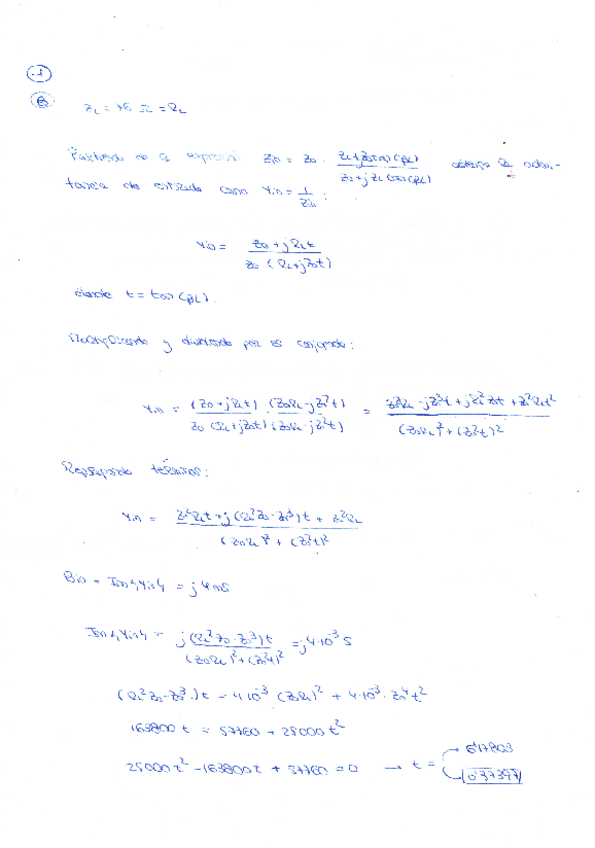 .1
B
Z_L = 76 Ω = R_L
Partiendo de la expresión Z_in = Z_0 · (Z_L + jZ_0 tan(βL)) / (Z_0 + jZ_L tan(βL)) obtengo la admi-
tancia de entrada como Y_in = 1/Z_in :
Y_in = (Z_0 + jR_L t) / (Z_0 (R_L + jZ_0 t))
donde t = tan(βL).
Multiplicando y dividiendo por el conjugado:
Y_in = (Z_0 + jR_L t) (Z_0 R_L - jZ_0² t) / (Z_0 (R_L + jZ_0 t) (Z_0 R_L - jZ_0² t)) = (Z_0² R_L - jZ_0³ t + jR_L² Z_0 t + Z_0² R_L t²) / ((Z_0 R_L)² + (Z_0² t)²)
Reagrupando términos:
Y_in = (Z_0² R_L t + j(R_L² Z_0 - Z_0³)t + Z_0² R_L) / ((Z_0 R_L)² + (Z_0² t)²)
B_in = Im{Y_in} = j4mS
Im{Y_in} = j(R_L² Z_0 - Z_0³)t / ((Z_0 R_L)² + (Z_0² t)²) = j4·10⁻³ S
(R_L² Z_0 - Z_0³)t = 4·10⁻³ (Z_0 R_L)² + 4·10⁻³ · Z_0⁴ t²
163800 t = 57760 + 25000 t²
25000 t² - 163800 t + 57760 = 0 → t = 6'17803
0'37397